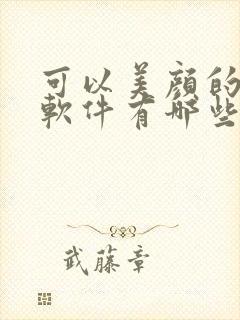 可以美顔的
軟件有哪些
武藤章